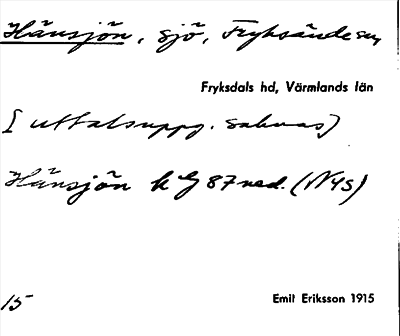 Hänsjön, sjö, Fryksände sn,
Fryksdals hd, Värmlands län
[uttalsuppg. saknas]
Hänsjön k G 87 ned. (N4S)
15
Emil Eriksson 1915